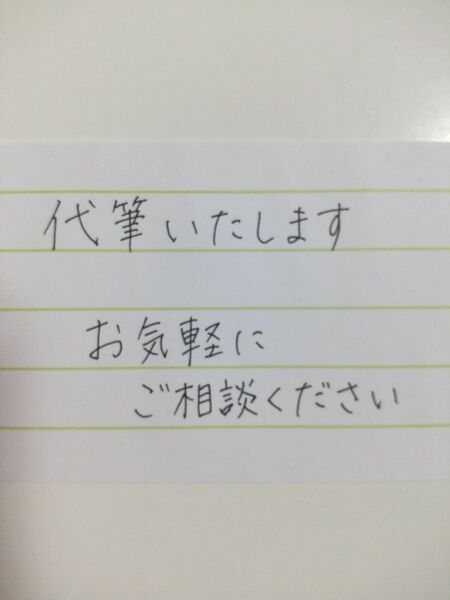 代筆いたします
お気軽に
ご相談ください